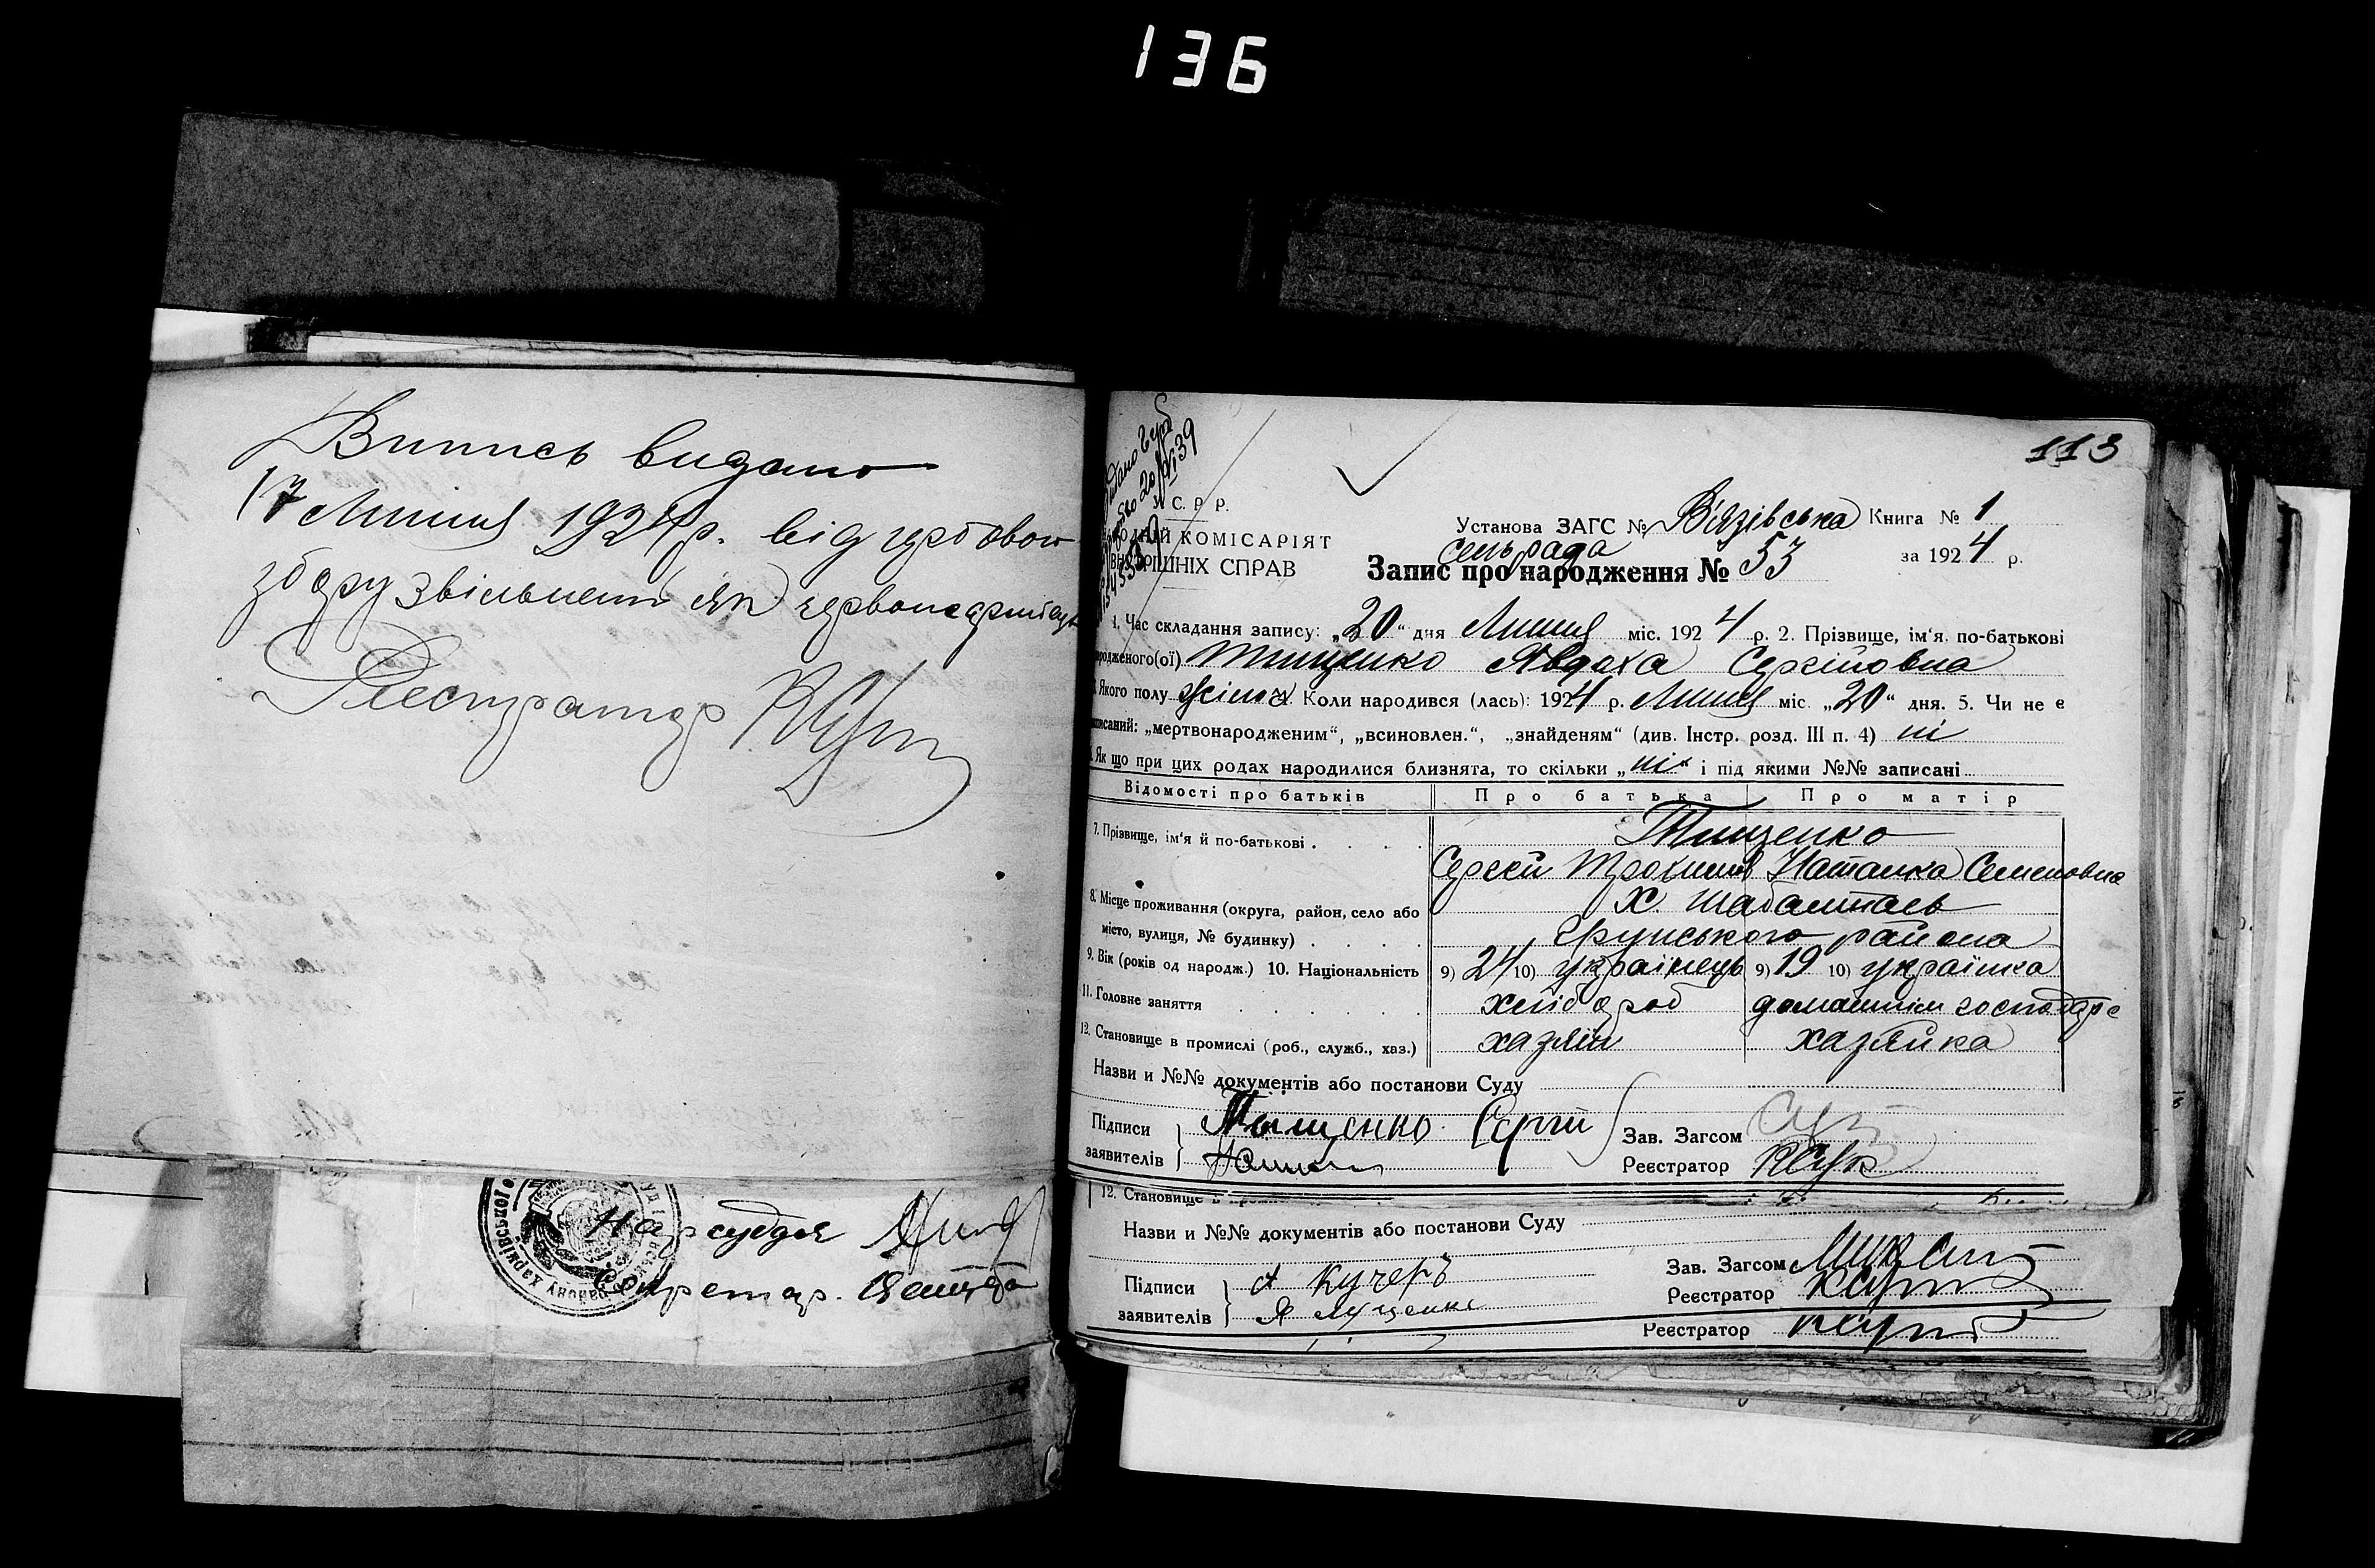 136
Випись видано
17 Липня 1924 р. від гербового
збору звільнений (як) червоноармієць
Реєстратор
Нарсуддя
Секретар.
113
С. Р. Р.
КОМІСАРІЯТ
ВНУТРІШНІХ СПРАВ
Установа ЗАГС № Вязівська Книга № 1
сельрада
за 1924 р.
Запис про народження № 53
1. Час складання запису: „20“ дня Липня міс. 1924 р. 2. Прізвище, ім‘я, по-батькові
народженого(ої) Тищенко Явдоха Сергіївна
Якого полу жіноч. Коли народився (лась): 1924 р. Липня міс. „20“ дня. 5. Чи не є
записаний: „мертвонародженим“, „всиновлен.“, „знайденям“ (див. Інстр. розд. III п. 4) ні
Як що при цих родах народилися близнята, то скільки „ні“ і під якими №№ записані
Відомості про батьків Про батька Про матір
7. Прізвище, ім‘я й по-батькові Тищенко
Сергій Трохимов Наталка Семеновна
8. Місце проживання (округа, район, село або Х.
місто, вулиця, № будинку) Грунського района
9. Вік (років од народж.) 10. Національність 9) 24 10) українець 9) 19 10) українка
11. Головне заняття хлібороб домашнім господар.
12. Становище в промислі (роб., служб., хаз.) хазяїн хазяйка
Назви и №№ документів або постанови Суду
Підписи заявителів Тыщенко Сергій
Зав. Загсом
Реєстратор
12. Становище в
Назви и №№ документів або постанови Суду
Підписи А Кучеръ Зав. Загсом
заявителів Я Лущенко Реєстратор
Реєстратор